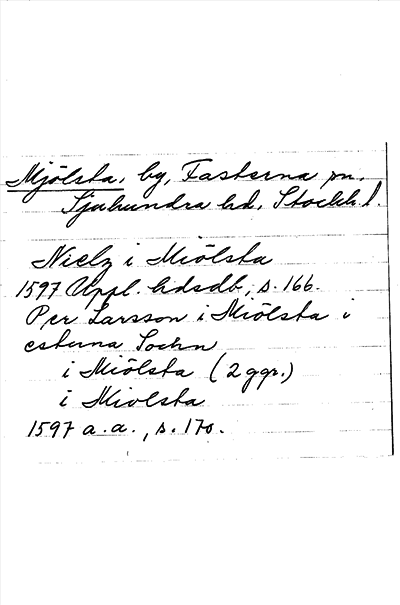 Mjölsta, by, Fasterna sn.
Sjuhundra hd, Stockh. l.
Nielz i Miölsta
1597 Uppl. hdsdb, s. 166.
Per Larsson i Miölsta i
esterna Sochn
i Miölsta (2 ggr.)
i Miolsta
1597 a.a., s. 170.